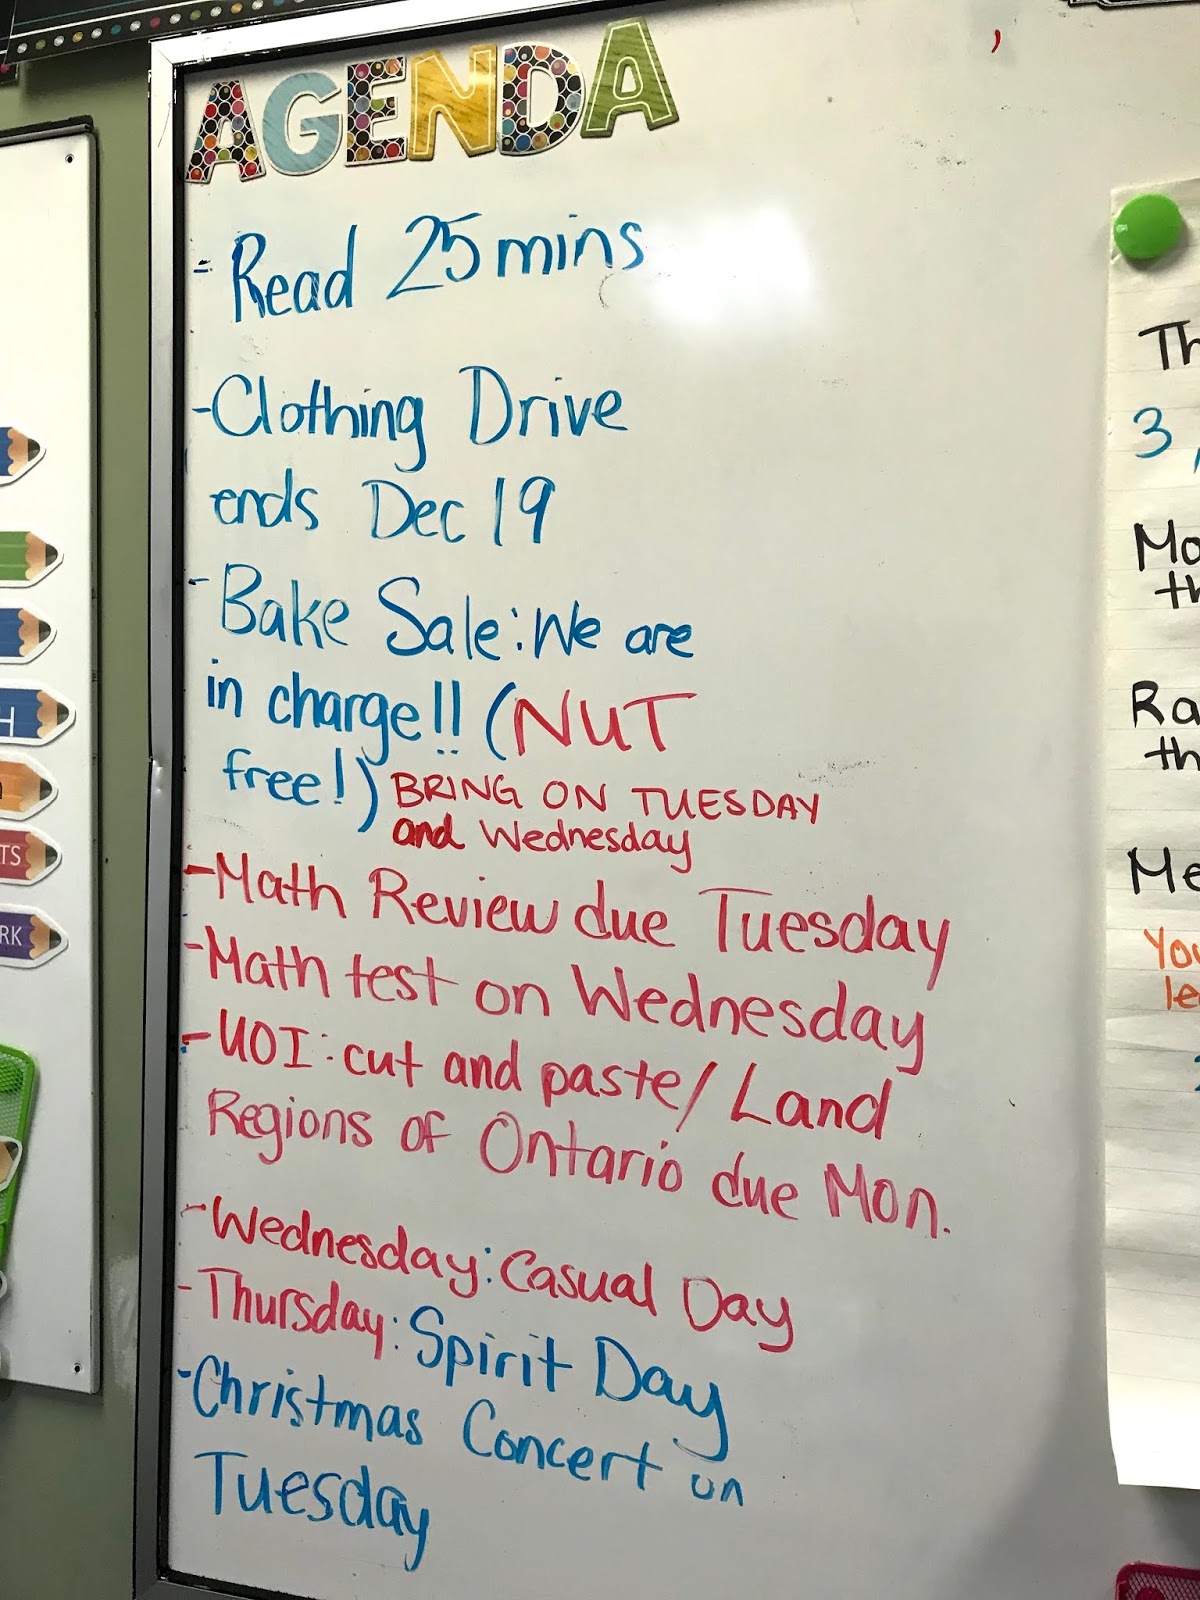 AGENDA
- Read 25 mins
- Clothing Drive
ends Dec 19
- Bake Sale: We are
in charge!! (NUT
free!) BRING ON TUESDAY
and Wednesday
- Math Review due Tuesday
- Math test on Wednesday
- UOI: cut and paste/ Land
Regions of Ontario due Mon.
- Wednesday: Casual Day
- Thursday: Spirit Day
- Christmas Concert on
Tuesday
H
TS
RK
Th
3
Mo
th
Ra
th
Me
You
le